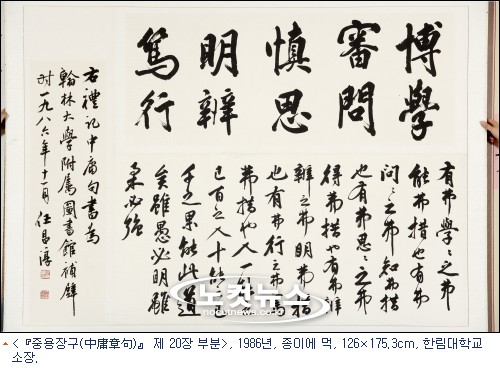 博學
審問
慎思
明辨
篤行
有弗學〻之弗
能弗措也有弗
問〻之弗知弗措
也有弗思〻之弗
得弗措也有弗辨
辨之弗明弗措
也有弗行〻之弗
篤弗措也人一能之
己百之人十能之
己千之果能此道
矣雖愚必明雖
柔必強
右禮記中庸句書爲
翰林大學附屬圖書館補壁
时一九八六年十一月 任昌淳
노컷뉴스
nocutnews.com
<『중용장구(中庸章句)』 제 20장 부분>, 1986년, 종이에 먹, 126×175,3cm, 한림대학교
소장.